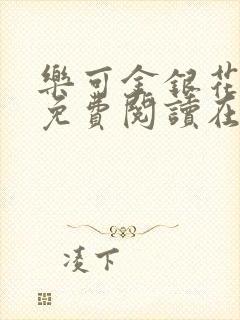 樂可金銀花
免費閱讀在
凌下